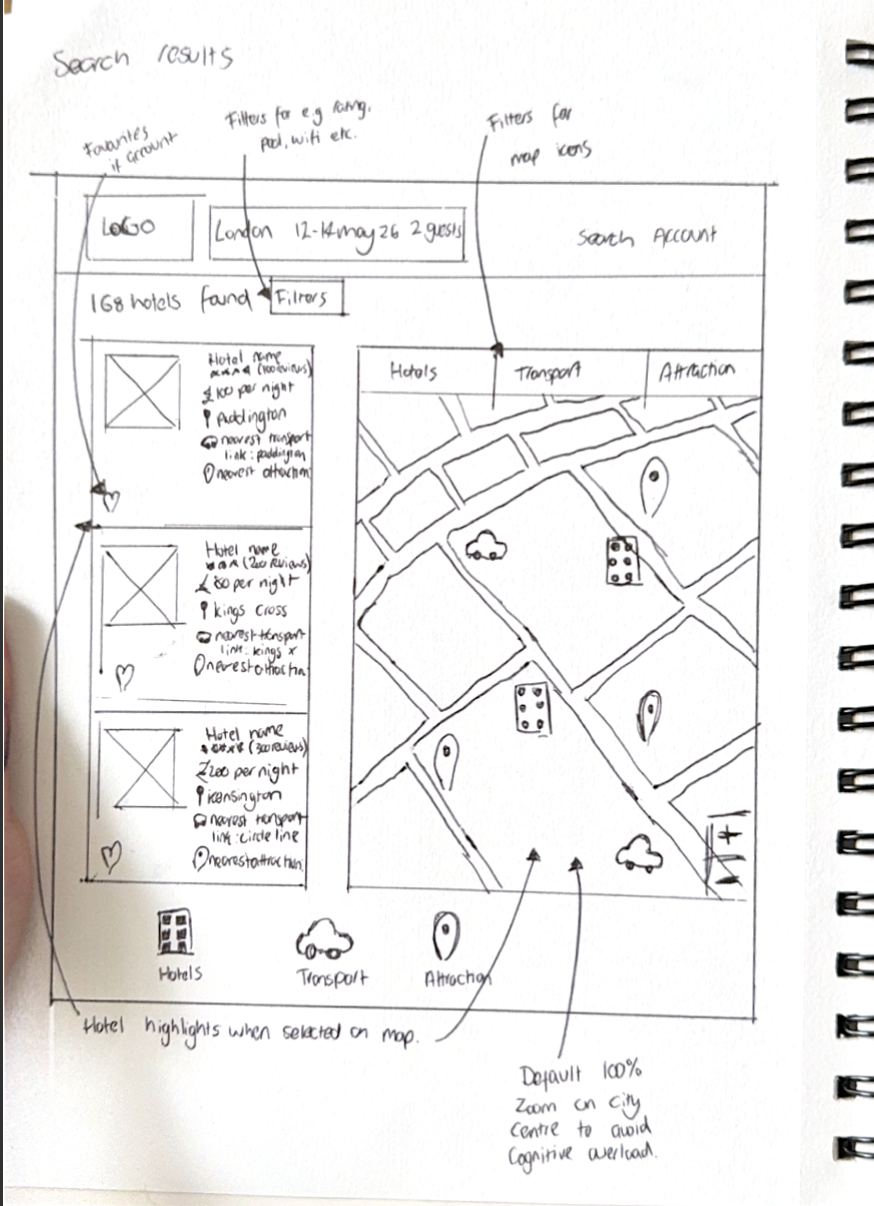 Search results
Favourites
if account
Filters for e.g rating,
pool, wifi etc.
Filters for
map icons
LOGO
London 12-14 may 26 2 guests
Search Account
168 hotels found
Filters
Hotel name
(100 reviews)
£100 per night
Paddington
nearest transport
link: paddington
nearest attraction
Hotel name
(200 reviews)
£80 per night
kings cross
nearest transport
link: kings x
nearest attraction
Hotel name
(300 reviews)
£200 per night
kensington
nearest transport
link: circle line
nearest attraction
Hotels
Transport
Attraction
+
Hotels
Transport
Attraction
Hotel highlights when selected on map.
Default 100%
Zoom on city
centre to avoid
Cognitive overload.